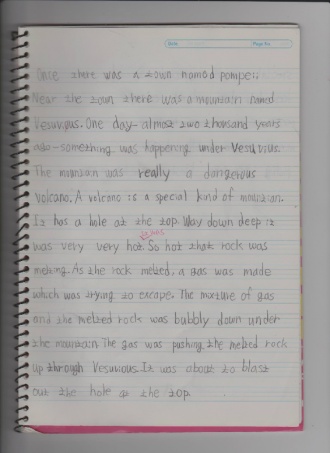 Date
Page No.
Once there was a town named pompeii
Near the town there was a mountain named
Vesuvius. One day-almost two thousand years
ago-something was happening under Vesuvius.
The mountain was really a dangerous
volcano. A volcano is a special kind of mountain.
It has a hole at the top. Way down deep it
was very very hot. So hot that rock was
melting. As the rock melted, a gas was made
which was trying to escape. The mixture of gas
and the melted rock was bubbly down under
the mountain The gas was pushing the melted rock
up through Vesuvious. It was about to blast
out the hole at the top.